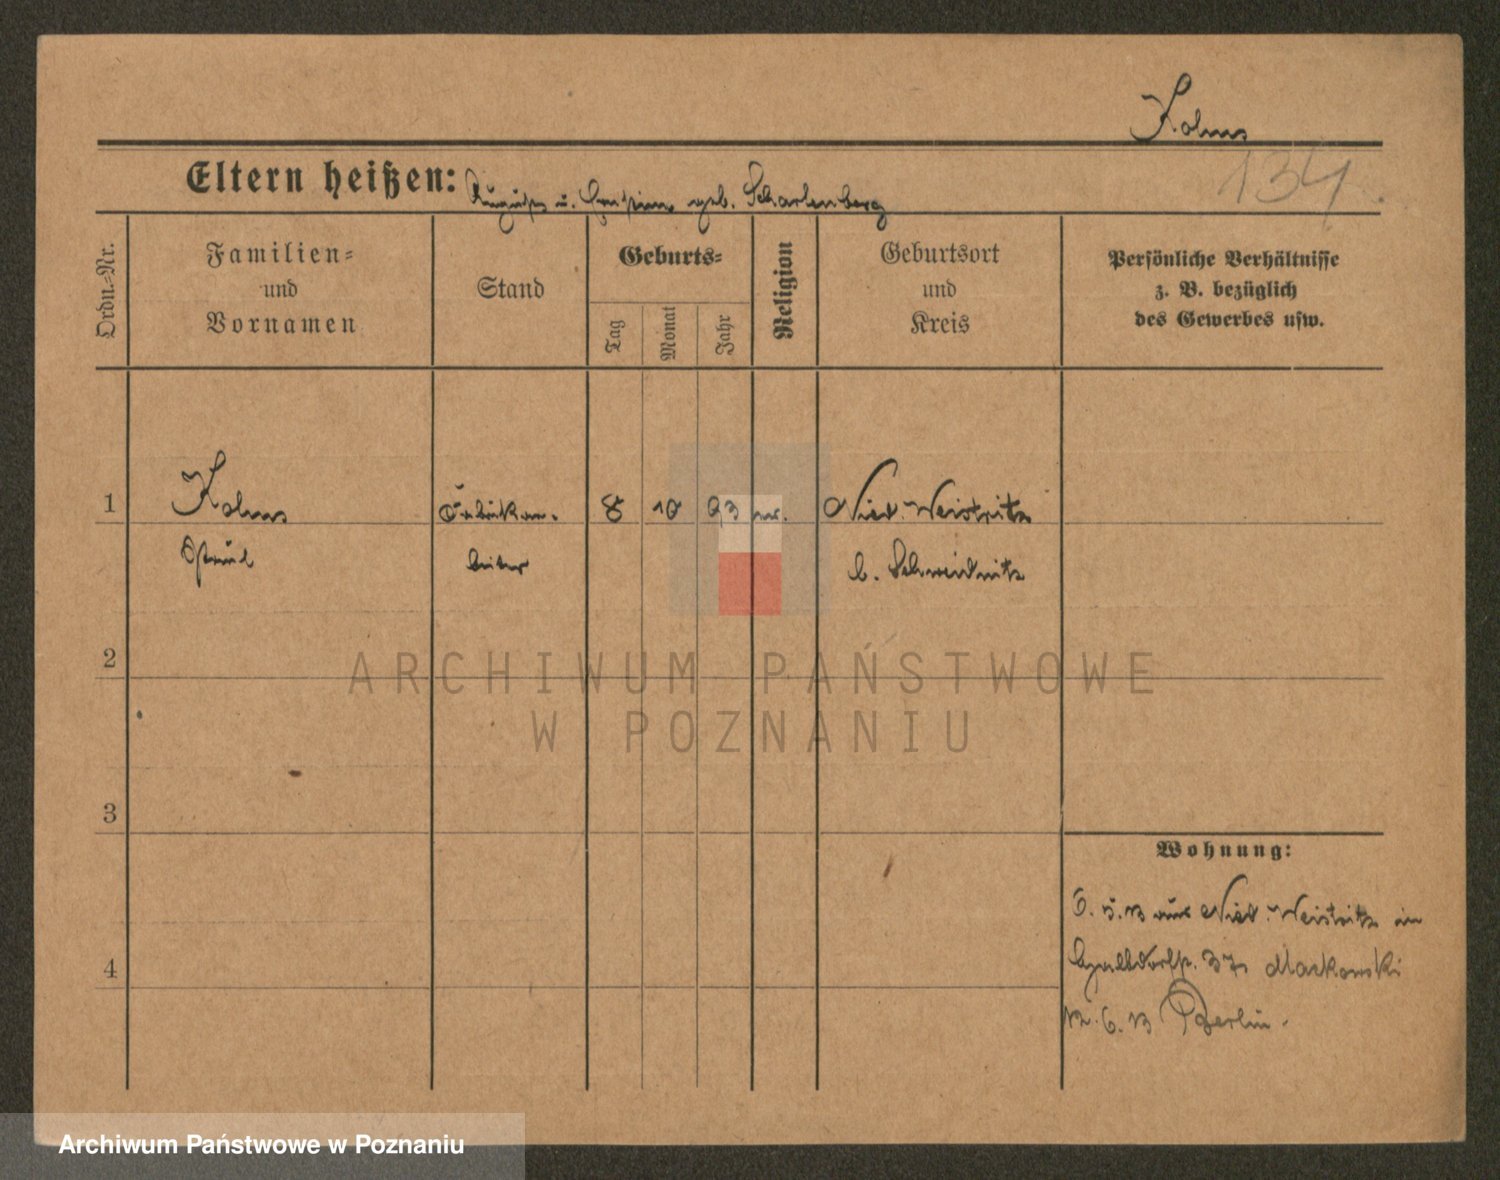 Kolms
134.
Eltern heißen: August u. geb. Scharlenberg
Ordn.-Nr.
Familien-
und
Vornamen
Stand
Geburts-
Tag
Monat
Jahr
Religion
Geburtsort
und
Kreis
Persönliche Verhältnisse
z. B. bezüglich
des Gewerbes usw.
1 Kolms 8 10 93 Nied. Weistritz
Paul b. Schweidnitz
2
3
4
Wohnung:
6. 5. 13 aus Nied. Weistritz in
37, Mackowski
12. 6. 13 Berlin.
ARCHIWUM PAŃSTWOWE
W POZNANIU
Archiwum Państwowe w Poznaniu